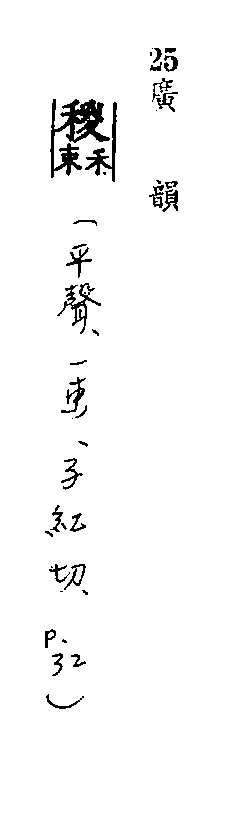 25廣韻
稯禾束
(平聲、一東、子紅切、P.32)